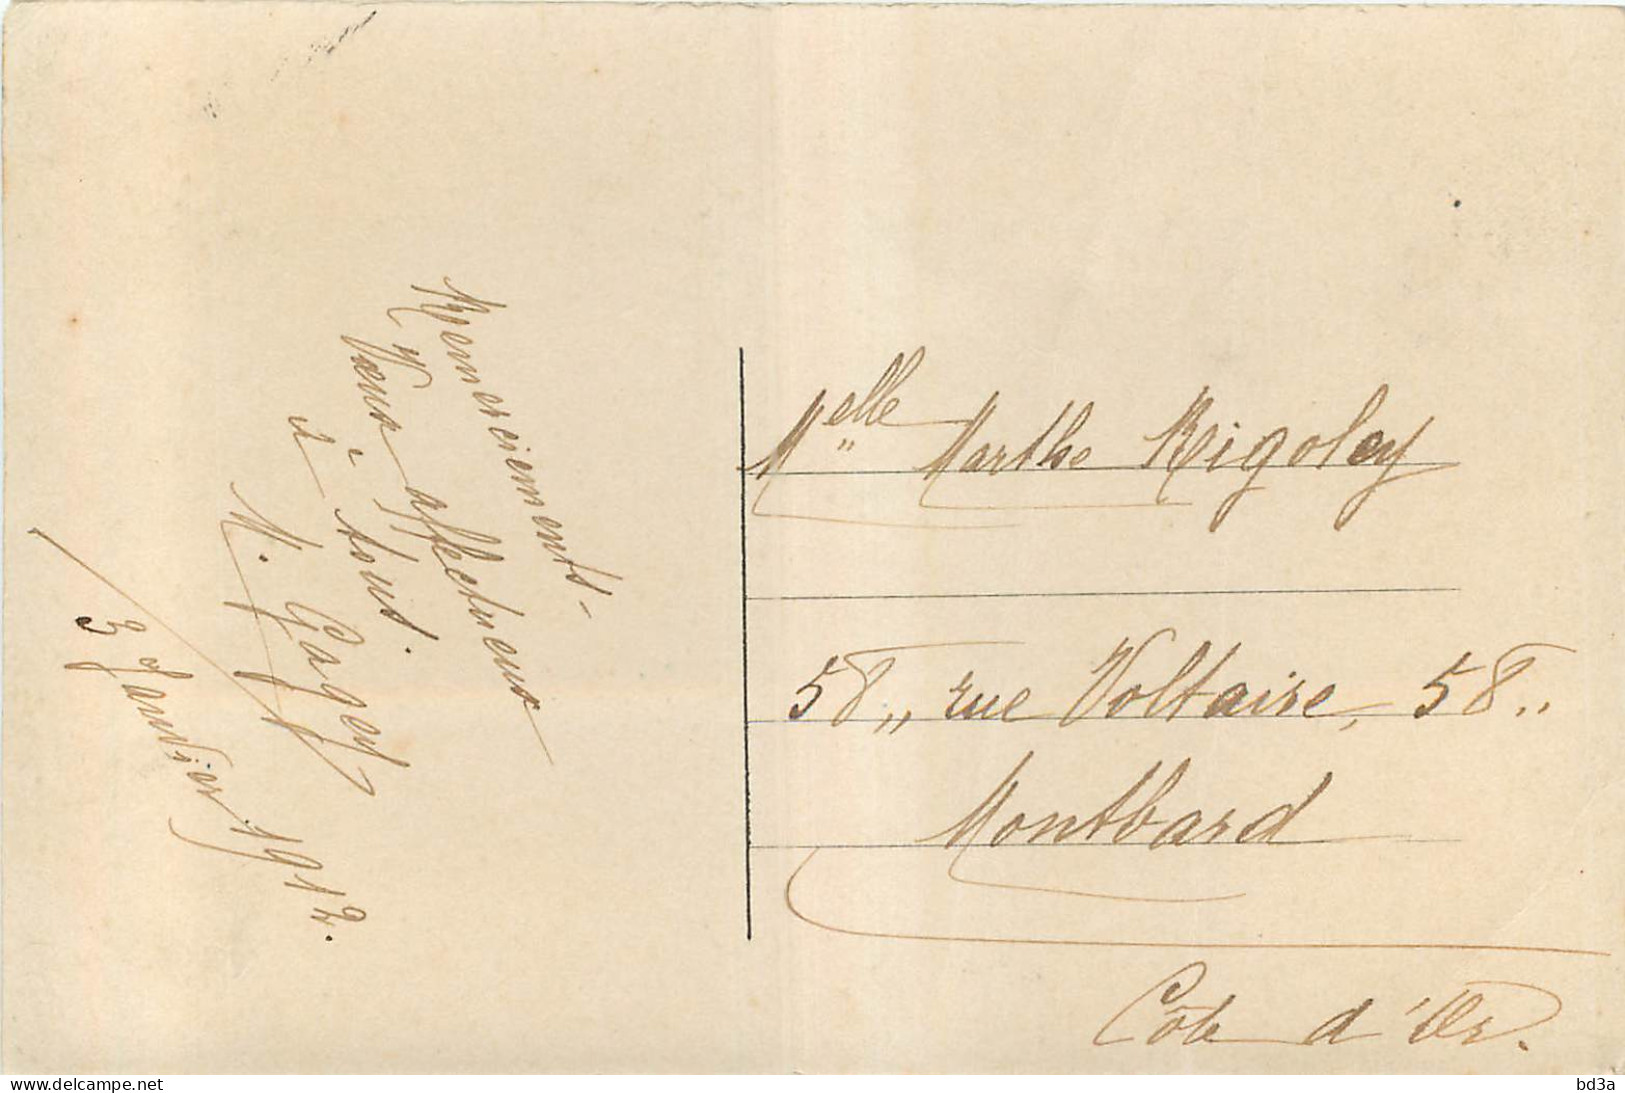 Remerciements -
Vœux affectueux
à tous.
M. Gagey
3 Janvier 1912.
Melle Marthe Rigoley
58,, rue Voltaire, 58..
Montbard
Côte d'Or.
https://www.delcampe.net
bd3a